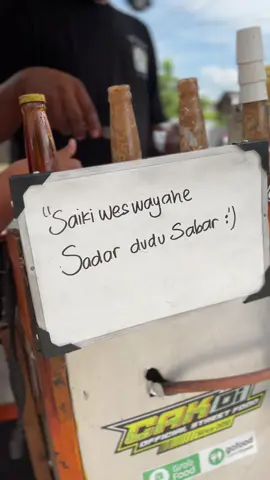 "Saiki wes wayahe
Sadar dudu Sabar :')
CAK DI
OFFICIAL STREET FOOD
Grab
Food
gofood